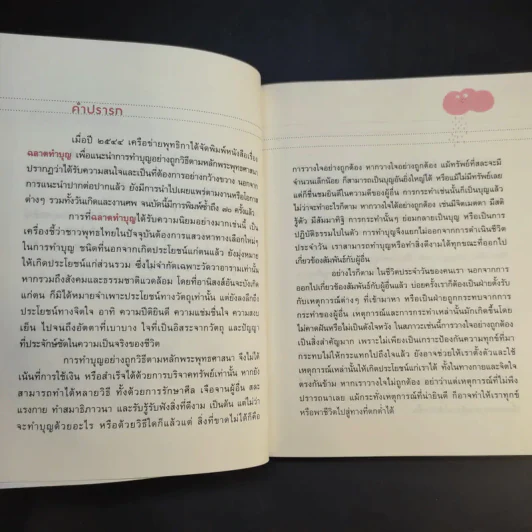 คำปรารภ
เมื่อปี ๒๕๔๔ เครือข่ายพุทธิกาได้จัดพิมพ์หนังสือเรื่อง
ฉลาดทำบุญ เพื่อแนะนำการทำบุญอย่างถูกวิธีตามหลักพระพุทธศาสนา
ปรากฏว่าได้รับความสนใจและเป็นที่ต้องการอย่างกว้างขวาง นอกจาก
การแนะนำปากต่อปากแล้ว ยังมีการนำไปเผยแพร่ตามงานหรือโอกาส
ต่างๆ รวมทั้งวันเกิดและงานศพ จนบัดนี้มีการพิมพ์ซ้ำถึง ครั้งแล้ว
การที่ฉลาดทำบุญได้รับความนิยมอย่างมากเช่นนี้ เป็น
เครื่องชี้ว่าชาวพุทธไทยในปัจจุบันต้องการแสวงหาทางเลือกใหม่ๆ
ในการทำบุญ ชนิดที่นอกจากเกิดประโยชน์แก่ตนแล้ว ยังมุ่งหมาย
ให้เกิดประโยชน์แก่ส่วนรวม ซึ่งไม่จำกัดเฉพาะวัดวาอารามเท่านั้น
หากรวมถึงสังคมและธรรมชาติแวดล้อม โดยที่อานิสงส์อันจะบังเกิด
แก่ตน ก็มิได้หมายจำเพาะประโยชน์ทางวัตถุเท่านั้น แต่ยังลงลึกถึง
ประโยชน์ทางจิตใจ อาทิ ความปีติยินดี ความแช่มชื่นใจ ความสงบ
เย็น ไปจนถึงอัตตาที่เบาบาง ใจที่เป็นอิสระจากวัตถุ และปัญญา
ที่ประจักษ์ชัดในความเป็นจริงของชีวิต
การทำบุญอย่างถูกวิธีตามหลักพระพุทธศาสนา จึงไม่ได้
เน้นที่การใช้เงิน หรือสำเร็จได้ด้วยการบริจาคทรัพย์เท่านั้น หากยัง
สามารถทำได้หลายวิธี ทั้งด้วยการรักษาศีล เจือจานผู้อื่น สละ
แรงกาย ทำสมาธิภาวนา และรับรู้รับฟังสิ่งที่ดีงาม เป็นต้น แต่ไม่ว่า
จะทำบุญด้วยอะไร หรือด้วยวิธีใดก็แล้วแต่ สิ่งที่ขาดไม่ได้ก็คือ
การวางใจอย่างถูกต้อง หากวางใจอย่างถูกต้อง แม้ทรัพย์ที่สละจะมี
จำนวนเล็กน้อย ก็สามารถเป็นบุญอันยิ่งใหญ่ได้ หรือแม้ไม่มีทรัพย์เลย
แต่ก็ชื่นชมยินดีในความดีของผู้อื่น การกระทำเช่นนั้นก็เป็นบุญแล้ว
ไม่ว่าจะทำอะไรก็ตาม หากวางใจได้อย่างถูกต้อง เช่นมีจิตเมตตา มีสติ
รู้ตัว มีสัมมาทิฐิ การกระทำนั้นๆ ย่อมกลายเป็นบุญ หรือเป็นการ
ปฏิบัติธรรมไปในตัว การทำบุญจึงแยกไม่ออกจากการดำเนินชีวิต
ประจำวัน เราสามารถทำบุญหรือทำสิ่งดีงามได้ทุกขณะที่ออกไป
เกี่ยวข้องสัมพันธ์กับผู้อื่น
อย่างไรก็ตาม ในชีวิตประจำวันของคนเรา นอกจากการ
ออกไปเกี่ยวข้องสัมพันธ์กับผู้อื่นแล้ว บ่อยครั้งเราก็ต้องเป็นฝ่ายตั้งรับ
กับเหตุการณ์ต่างๆ ที่เข้ามาหา หรือเป็นฝ่ายถูกกระทบจากการ
กระทำของผู้อื่น เหตุการณ์และการกระทำเหล่านั้นมักเกิดขึ้นโดย
ไม่คาดฝันหรือไม่เป็นดังใจหวัง ในสภาวะเช่นนี้การวางใจอย่างถูกต้อง
เป็นสิ่งสำคัญมาก เพราะไม่เพียงเป็นเกราะป้องกันความทุกข์ที่มา
กระทบไม่ให้กระแทกไปถึงใจแล้ว ยังอาจช่วยให้เราตั้งตัวและใช้
เหตุการณ์เหล่านั้นให้เกิดประโยชน์แก่เราได้ ทั้งในทางกายและจิตใจ
ตรงกันข้าม หากเราวางใจไม่ถูกต้อง อย่าว่าแต่เหตุการณ์ที่ไม่พึง
ปรารถนาเลย แม้กระทั่งเหตุการณ์ที่น่ายินดี ก็อาจทำให้เราทุกข์
หรือพาชีวิตไปสู่ทางที่ตกต่ำได้